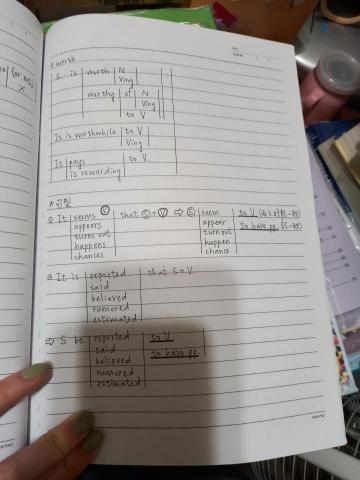 # worth
S. is worth N
Ving
worthy of N
Ving
to V
It is worthwhile to V
Ving
It pays to V
is rewarding
* 句型
① It seems Ⓥ that Ⓢ+Ⓥ ⇒ Ⓢ seem to V
appears appear to have p.p.
turns out turn out
happens happen
chances chance
② It is reported that S+V
said
believed
rumored
estimated
⇒ S be reported to V
said to have p.p.
believed
rumored
estimated